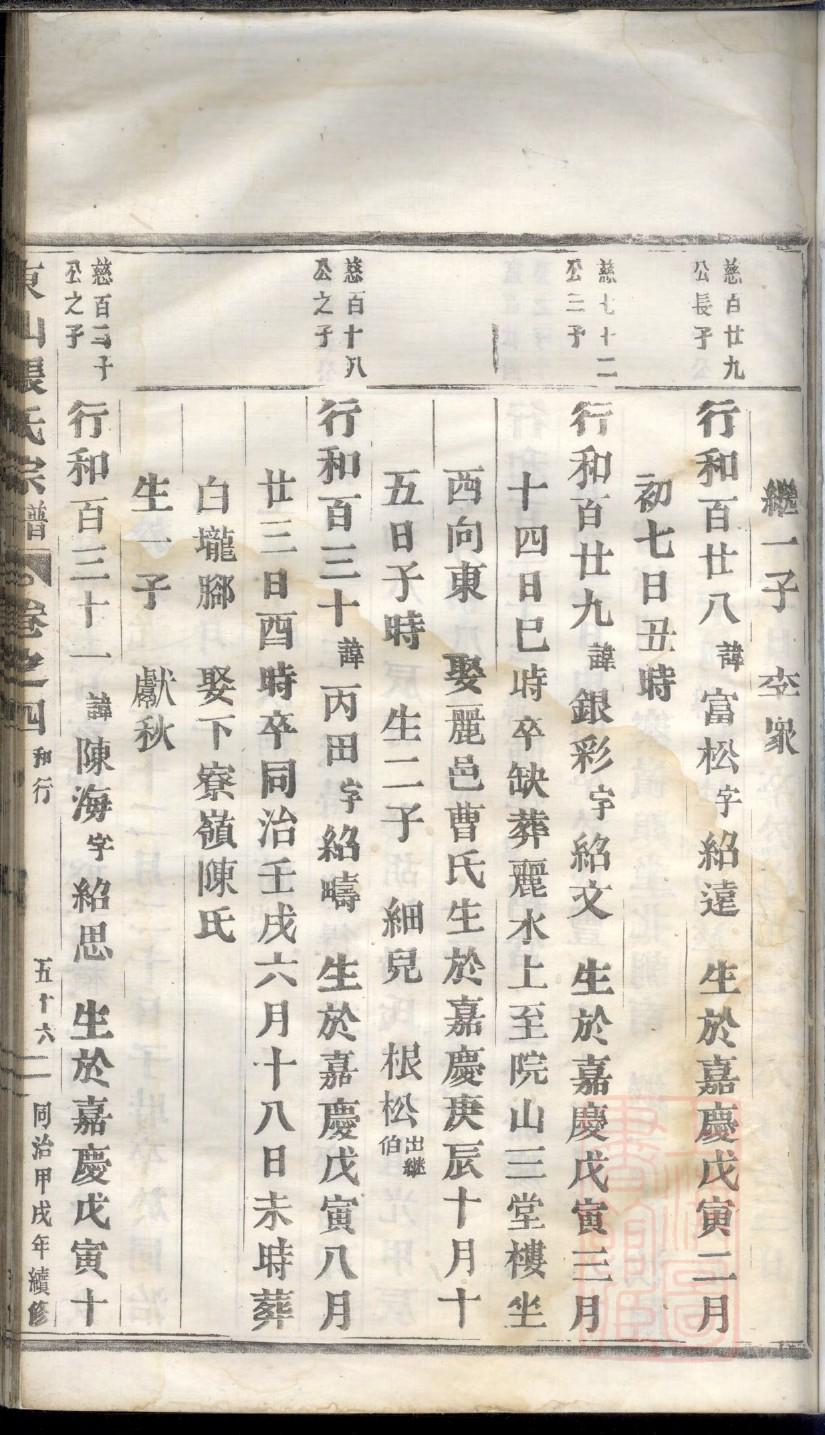 繼一子 李家
慈百廿九
公長子
行和百廿八諱富松字紹遠 生於嘉慶戊寅二月
初七日丑時
慈七十二
公三子
行和百廿九諱銀彩字紹文 生於嘉慶戊寅三月
十四日巳時卒缺葬麗水上至院山三堂樓坐
西向東 娶麗邑曹氏生於嘉慶庚辰十月十
五日子時 生二子 細兒 根松出繼伯
慈百十八
公之子
行和百三十諱丙田字紹疇 生於嘉慶戊寅八月
廿三日酉時卒同治壬戌六月十八日未時葬
白壠腳 娶下寮嶺陳氏
生一子 獻秋
慈百
公之子
行和百三十一諱陳海字紹思 生於嘉慶戊寅十
東山張氏宗譜 卷之四 和行 五十六 同治甲戌年續修